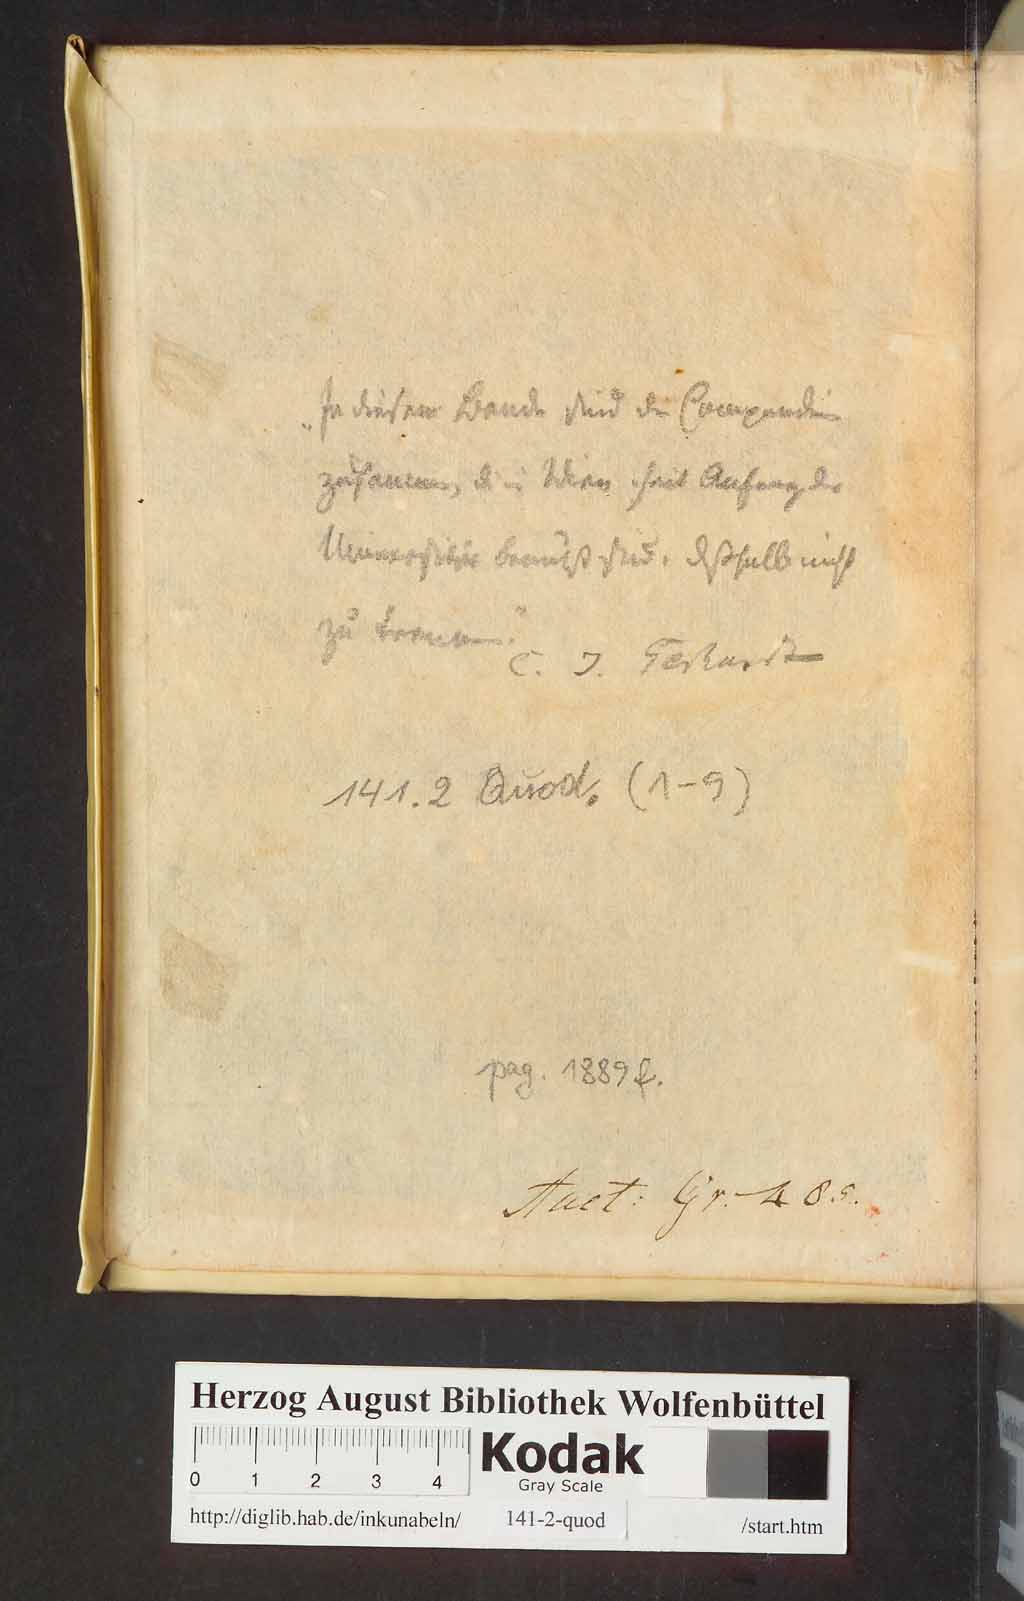 „In diesem Bande sind die Compendien
zusammen, die in Wien seit Anfang der
Universität benutzt sind. deßhalb nicht
zu trennen."
C. J. Gerhardt
141.2 Quod. (1-9)
pag. 1889 f.
Auct: Gr. 48 s.
Herzog August Bibliothek Wolfenbüttel
0 1 2 3 4
Kodak
Gray Scale
http://diglib.hab.de/inkunabeln/ 141-2-quod /start.htm